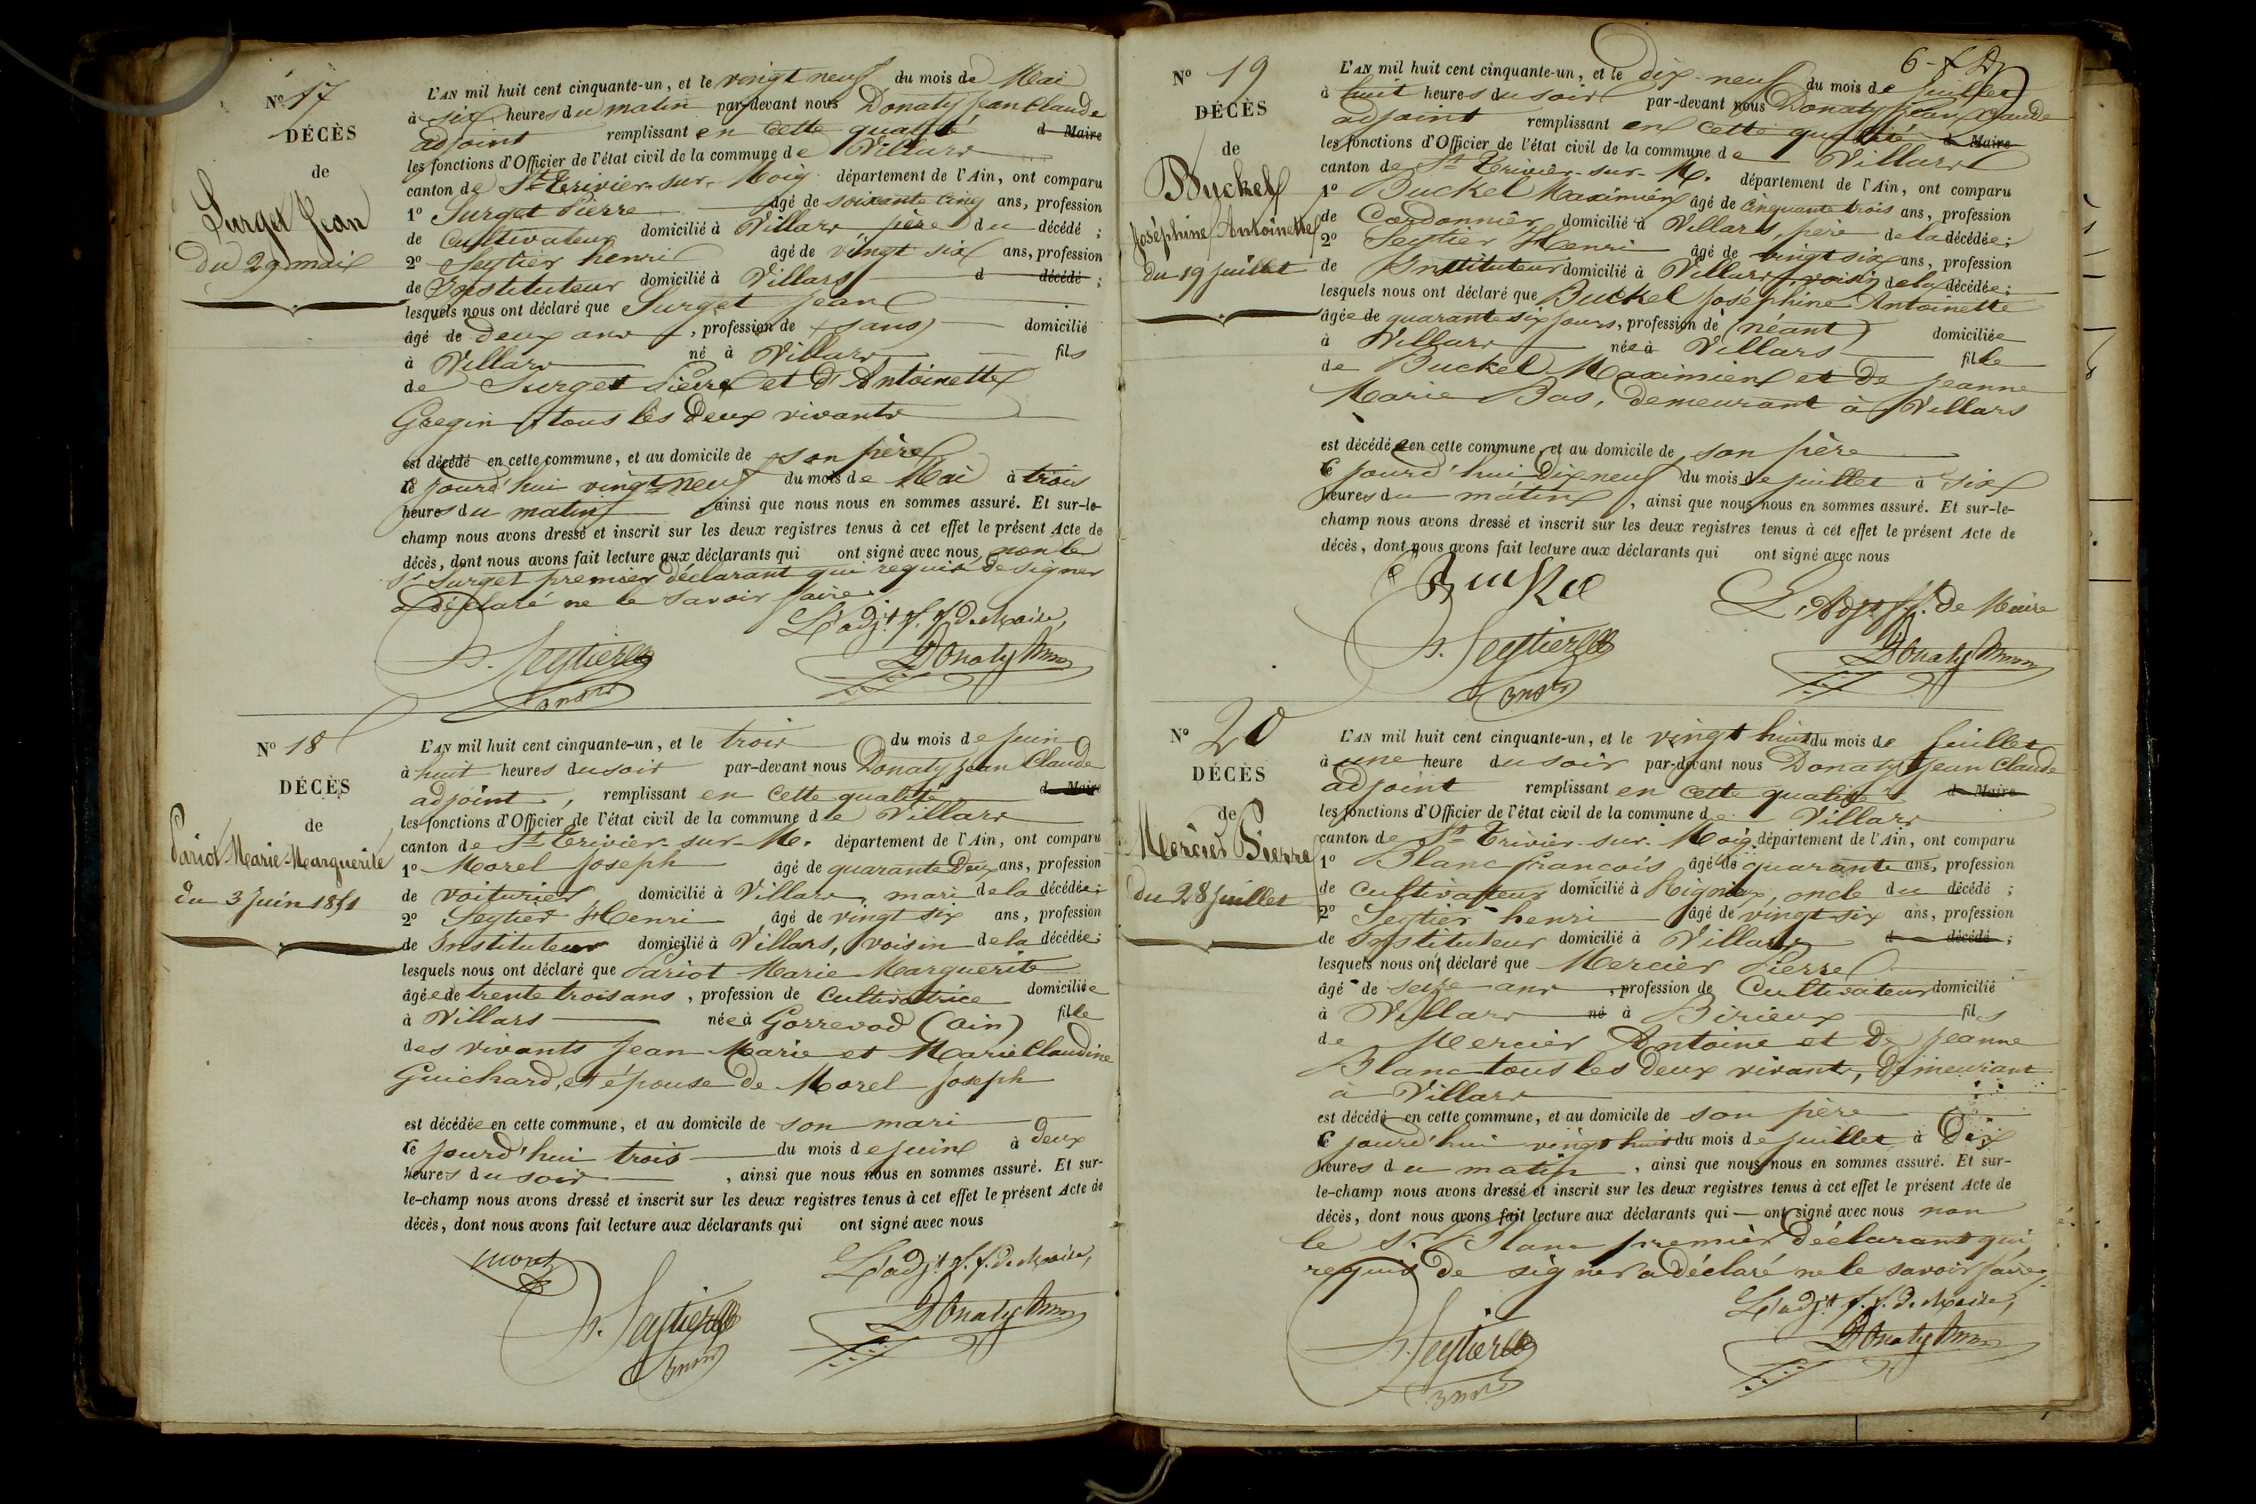 Nº 17
DÉCÈS
de
Surget Jean
du 29 mai
L'AN mil huit cent cinquante-un, et le vingt neuf du mois de Mai
à six heures du matin par-devant nous Donaty Jean Claude
adjoint remplissant en cette qualité d Maire
les fonctions d'Officier de l'état civil de la commune de Villars
canton de St Trivier-sur-Moig département de l'Ain, ont comparu
1º Surget Pierre âgé de soixante cinq ans, profession
de Cultivateur domicilié à Villars père du décédé ;
2º Seytier henri âgé de vingt six ans, profession
de Instituteur domicilié à Villars d décédé ;
lesquels nous ont déclaré que Surget Jean
âgé de deux ans, profession de (sans) domicilié
à Villars né à Villars fils
de Surget Pierre et d'Antoinette
Gregin tous les deux vivants
est décédé en cette commune, et au domicile de son père
ce jourd'hui vingt neuf du mois de Mai à trois
heures du matin ainsi que nous nous en sommes assuré. Et sur-le-
champ nous avons dressé et inscrit sur les deux registres tenus à cet effet le présent Acte de
décès, dont nous avons fait lecture aux déclarants qui ont signé avec nous, non le
Sr Surget premier déclarant qui requis de signer
a déclaré ne le savoir faire.
L'adjt f. f. de Maire,
H. Seytier Donaty
Nº 18
DÉCÈS
de
Pariot Marie-Marguerite
du 3 Juin 1851
L'AN mil huit cent cinquante-un, et le trois du mois de Juin
à huit heures du soir par-devant nous Donaty Jean Claude
adjoint, remplissant en cette qualité d Maire
les fonctions d'Officier de l'état civil de la commune de Villars
canton de St Trivier-sur-M. département de l'Ain, ont comparu
1º Morel Joseph âgé de quarante deux ans, profession
de voiturier domicilié à Villars, mari de la décédée ;
2º Seytier Henri âgé de vingt six ans, profession
de Instituteur domicilié à Villars, voisin de la décédée ;
lesquels nous ont déclaré que Pariot Marie Marguerite
âgée de trente trois ans, profession de Cultivatrice domiciliée
à Villars née à Gorrevod (Ain) fille
des vivants Jean Marie et Marie Claudine
Guichard, et épouse de Morel Joseph
est décédée en cette commune, et au domicile de son mari
ce jourd'hui trois du mois de Juin à deux
heures du soir, ainsi que nous nous en sommes assuré. Et sur-
le-champ nous avons dressé et inscrit sur les deux registres tenus à cet effet le présent Acte de
décès, dont nous avons fait lecture aux déclarants qui ont signé avec nous
L'adjt f. f. de Maire,
H. Seytier Donaty
6-
Nº 19
DÉCÈS
de
Buckel
Joséphine Antoinette
du 19 juillet
L'AN mil huit cent cinquante-un, et le dix-neuf du mois de Juillet
à huit heures du soir par-devant nous Donaty Jean Claude
adjoint remplissant en cette qualité d Maire
les fonctions d'Officier de l'état civil de la commune de Villars
canton de St Trivier-sur-M. département de l'Ain, ont comparu
1º Buckel Maximien âgé de cinquante trois ans, profession
de Cordonnier, domicilié à Villars, père de la décédée ;
2º Seytier Henri âgé de vingt six ans, profession
de Instituteur domicilié à Villars, voisin de la décédée ;
lesquels nous ont déclaré que Buckel Joséphine Antoinette
âgée de quarante six jours, profession de (néant) domiciliée
à Villars née à Villars fille
de Buckel Maximien et de Jeanne
Marie Bas, demeurant à Villars
est décédée en cette commune, et au domicile de son père
ce jourd'hui Dix neuf du mois de Juillet à six
heures du matin, ainsi que nous nous en sommes assuré. Et sur-le-
champ nous avons dressé et inscrit sur les deux registres tenus à cet effet le présent Acte de
décès, dont nous avons fait lecture aux déclarants qui ont signé avec nous
L'Adjt ff. de Maire
H. Seytier Donaty
Nº 20
DÉCÈS
de
Mercier Pierre
du 28 Juillet
L'AN mil huit cent cinquante-un, et le vingt huit du mois de Juillet
à une heure du soir par-devant nous Donaty Jean Claude
adjoint remplissant en cette qualité d Maire
les fonctions d'Officier de l'état civil de la commune de Villars
canton de St Trivier-sur-Moig département de l'Ain, ont comparu
1º Blanc françois âgé de quarante ans, profession
de Cultivateur domicilié à Rignieux, oncle du décédé ;
2º Seytier henri âgé de vingt-six ans, profession
de Instituteur domicilié à Villars d décédé ;
lesquels nous ont déclaré que Mercier Pierre
âgé de seize ans, profession de Cultivateur domicilié
à Villars né à Birieux fils
de Mercier Antoine et De Jeanne
Blanc tous les deux vivants, Demeurant
à Villars
est décédé en cette commune, et au domicile de son père
ce jourd'hui vingt huit du mois de Juillet à Dix
heures du matin, ainsi que nous nous en sommes assuré. Et sur-
le-champ nous avons dressé et inscrit sur les deux registres tenus à cet effet le présent Acte de
décès, dont nous avons fait lecture aux déclarants qui ont signé avec nous non
le Sr Blanc premier Déclarant qui
requis de signer a déclaré ne le savoir faire.
L'adjt f. f. de Maire,
H. Seytier Donaty